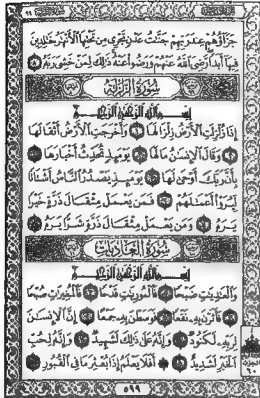 جَزَآؤُهُمْ عِندَ رَبِّهِمْ جَنَّٰتُ عَدْنٍ تَجْرِى مِن تَحْتِهَا ٱلْأَنْهَٰرُ خَٰلِدِينَ
فِيهَآ أَبَدًا رَّضِىَ ٱللَّهُ عَنْهُمْ وَرَضُوا۟ عَنْهُ ذَٰلِكَ لِمَنْ خَشِىَ رَبَّهُۥ
سُورَةُ الزَّلْزَلَةِ
بِسْمِ ٱللَّهِ ٱلرَّحْمَٰنِ ٱلرَّحِيمِ
إِذَا زُلْزِلَتِ ٱلْأَرْضُ زِلْزَالَهَا وَأَخْرَجَتِ ٱلْأَرْضُ أَثْقَالَهَا
وَقَالَ ٱلْإِنسَٰنُ مَا لَهَا يَوْمَئِذٍ تُحَدِّثُ أَخْبَارَهَا
بِأَنَّ رَبَّكَ أَوْحَىٰ لَهَا يَوْمَئِذٍ يَصْدُرُ ٱلنَّاسُ أَشْتَاتًا
لِّيُرَوْا۟ أَعْمَٰلَهُمْ فَمَن يَعْمَلْ مِثْقَالَ ذَرَّةٍ خَيْرًا
يَرَهُۥ وَمَن يَعْمَلْ مِثْقَالَ ذَرَّةٍ شَرًّا يَرَهُۥ
سُورَةُ العَادِيَاتِ
بِسْمِ ٱللَّهِ ٱلرَّحْمَٰنِ ٱلرَّحِيمِ
وَٱلْعَٰدِيَٰتِ ضَبْحًا فَٱلْمُورِيَٰتِ قَدْحًا فَٱلْمُغِيرَٰتِ صُبْحًا
فَأَثَرْنَ بِهِۦ نَقْعًا فَوَسَطْنَ بِهِۦ جَمْعًا إِنَّ ٱلْإِنسَٰنَ
لِرَبِّهِۦ لَكَنُودٌ وَإِنَّهُۥ عَلَىٰ ذَٰلِكَ لَشَهِيدٌ وَإِنَّهُۥ لِحُبِّ
ٱلْخَيْرِ لَشَدِيدٌ أَفَلَا يَعْلَمُ إِذَا بُعْثِرَ مَا فِى ٱلْقُبُورِ
٥٩٩